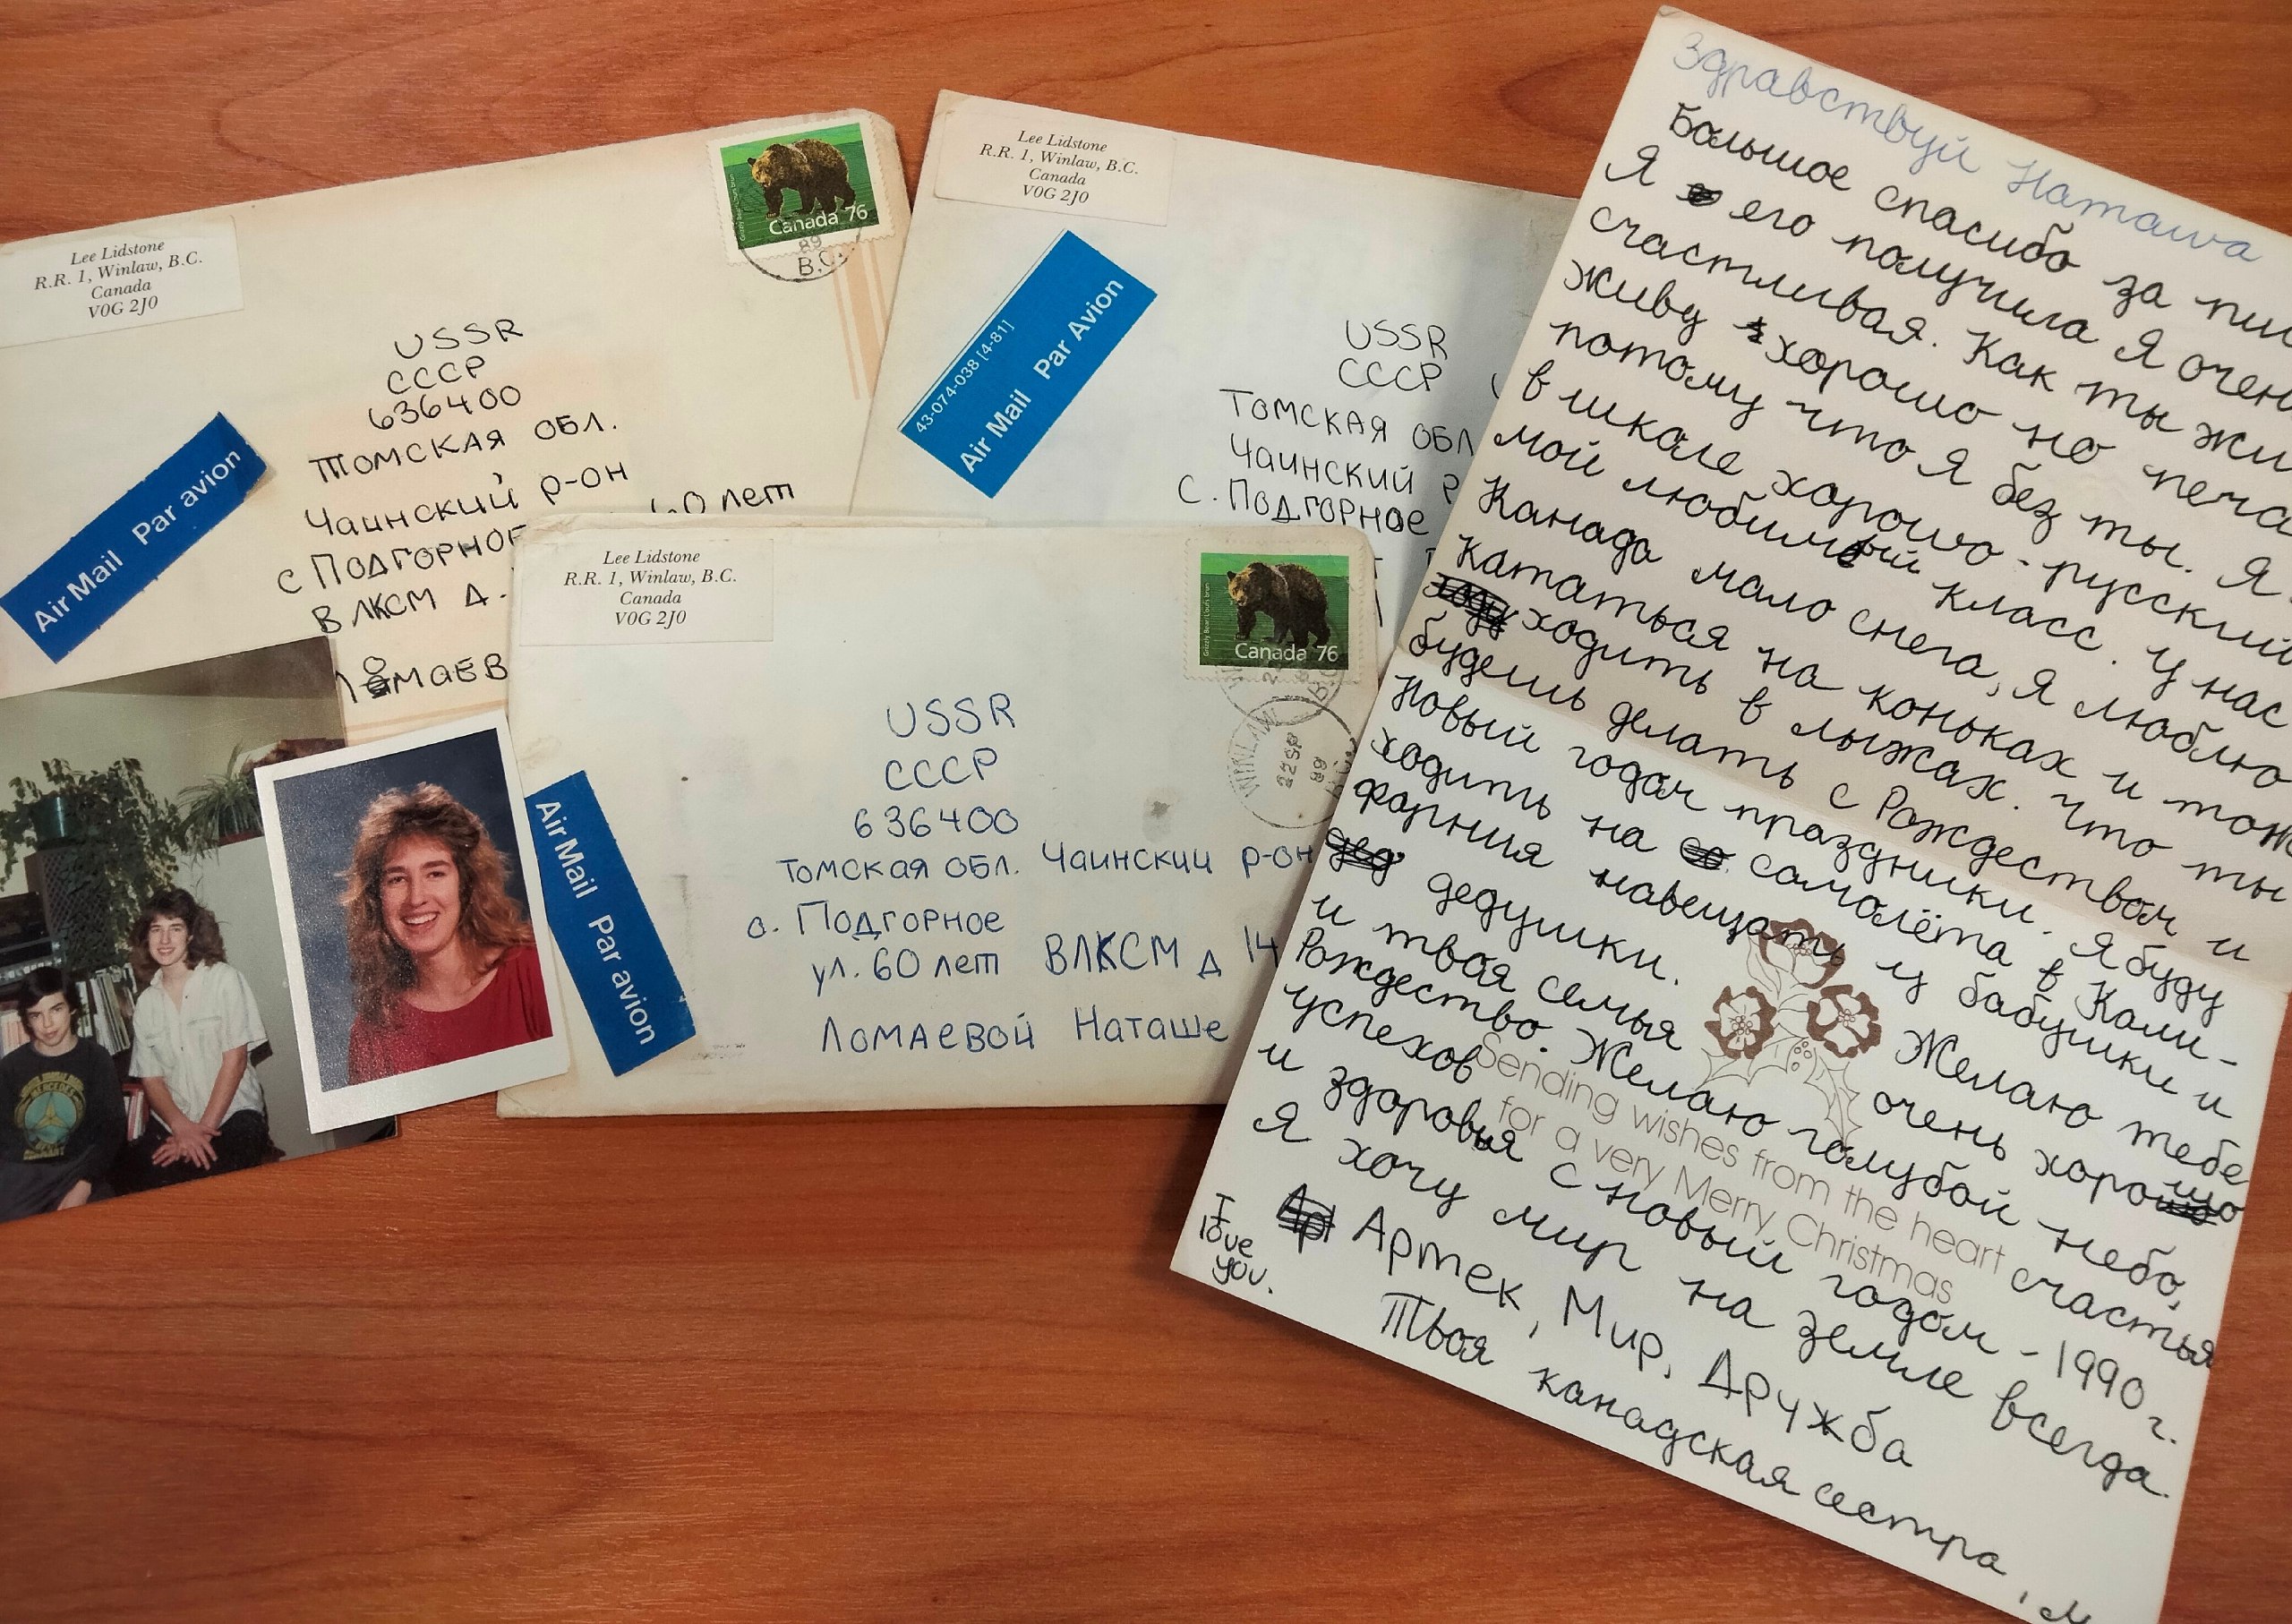 Lee Lidstone
R.R. 1, Winlaw, B.C.
Canada
V0G 2J0
Grizzly Bear/L'ours brun
Canada 76
89
B.C.
Air Mail Par avion
USSR
СССР
636400
Томская обл.
Чаинский р-он
с Подгорное 60 лет
ВЛКСМ д.
Lee Lidstone
R.R. 1, Winlaw, B.C.
Canada
V0G 2J0
43-074-038 [4-81]
Air Mail Par Avion
USSR
СССР
Томская обл
Чаинский р
С. Подгорное
Lee Lidstone
R.R. 1, Winlaw, B.C.
Canada
V0G 2J0
Grizzly Bear/L'ours brun
Canada 76
WINLAW
22 SP
89
Air Mail Par avion
USSR
СССР
636400
Томская обл. Чаинский р-он
с. Подгорное
ул. 60 лет ВЛКСМ д 14
Ломаевой Наташе
Здравствуй Наташа
Большое спасибо за
Я его получила Я очень
счастливая. Как ты
живу хорошо но
потому что я без ты. Я
в школе хорошо - русский
мой любимый класс. У нас
Канада мало снега, Я люблю
кататься на коньках и
ходить в лыжах. Что ты
будешь делать с Рождеством и
Новый годом праздники. Я буду
ходить на самолёта в Кали-
форния навещать у бабушки и
дедушки. Желаю тебе
и твоя семья очень хорошо
Рождество. Желаю голубой небо,
успехов счастья
и здоровья с новый годом - 1990 г.
Я хочу мир на земле всегда.
Артек, Мир, Дружба
Твоя канадская сестра,
I
love
you.
Sending wishes from the heart
for a very Merry Christmas